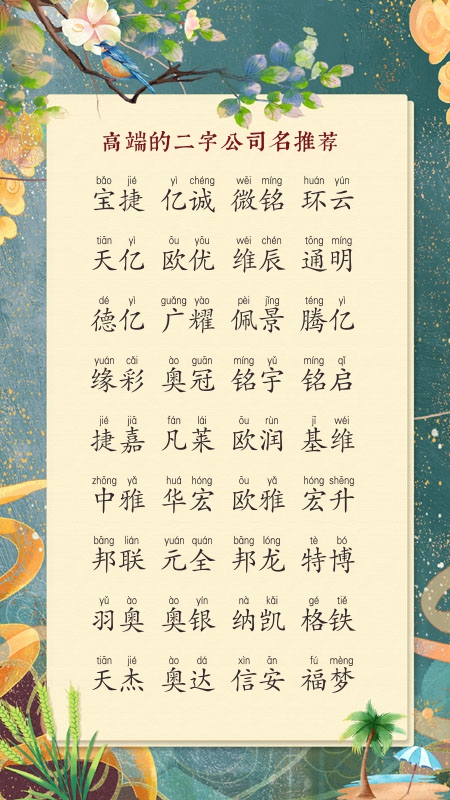 高端的二字公司名推荐
bǎo jié yì chéng wēi míng huán yún
宝捷 亿诚 微铭 环云
tiān yì ōu yōu wéi chén tōng míng
天亿 欧优 维辰 通明
dé yì guǎng yào pèi jǐng téng yì
德亿 广耀 佩景 腾亿
yuán cǎi ào guān míng yǔ míng qǐ
缘彩 奥冠 铭宇 铭启
jié jiā fán lái ōu rùn jī wéi
捷嘉 凡莱 欧润 基维
zhōng yǎ huá hóng ōu yǎ hóng shēng
中雅 华宏 欧雅 宏升
bāng lián yuán quán bāng lóng tè bó
邦联 元全 邦龙 特博
yǔ ào ào yín nà kǎi gé tiě
羽奥 奥银 纳凯 格铁
tiān jié ào dá xìn ān fú mèng
天杰 奥达 信安 福梦